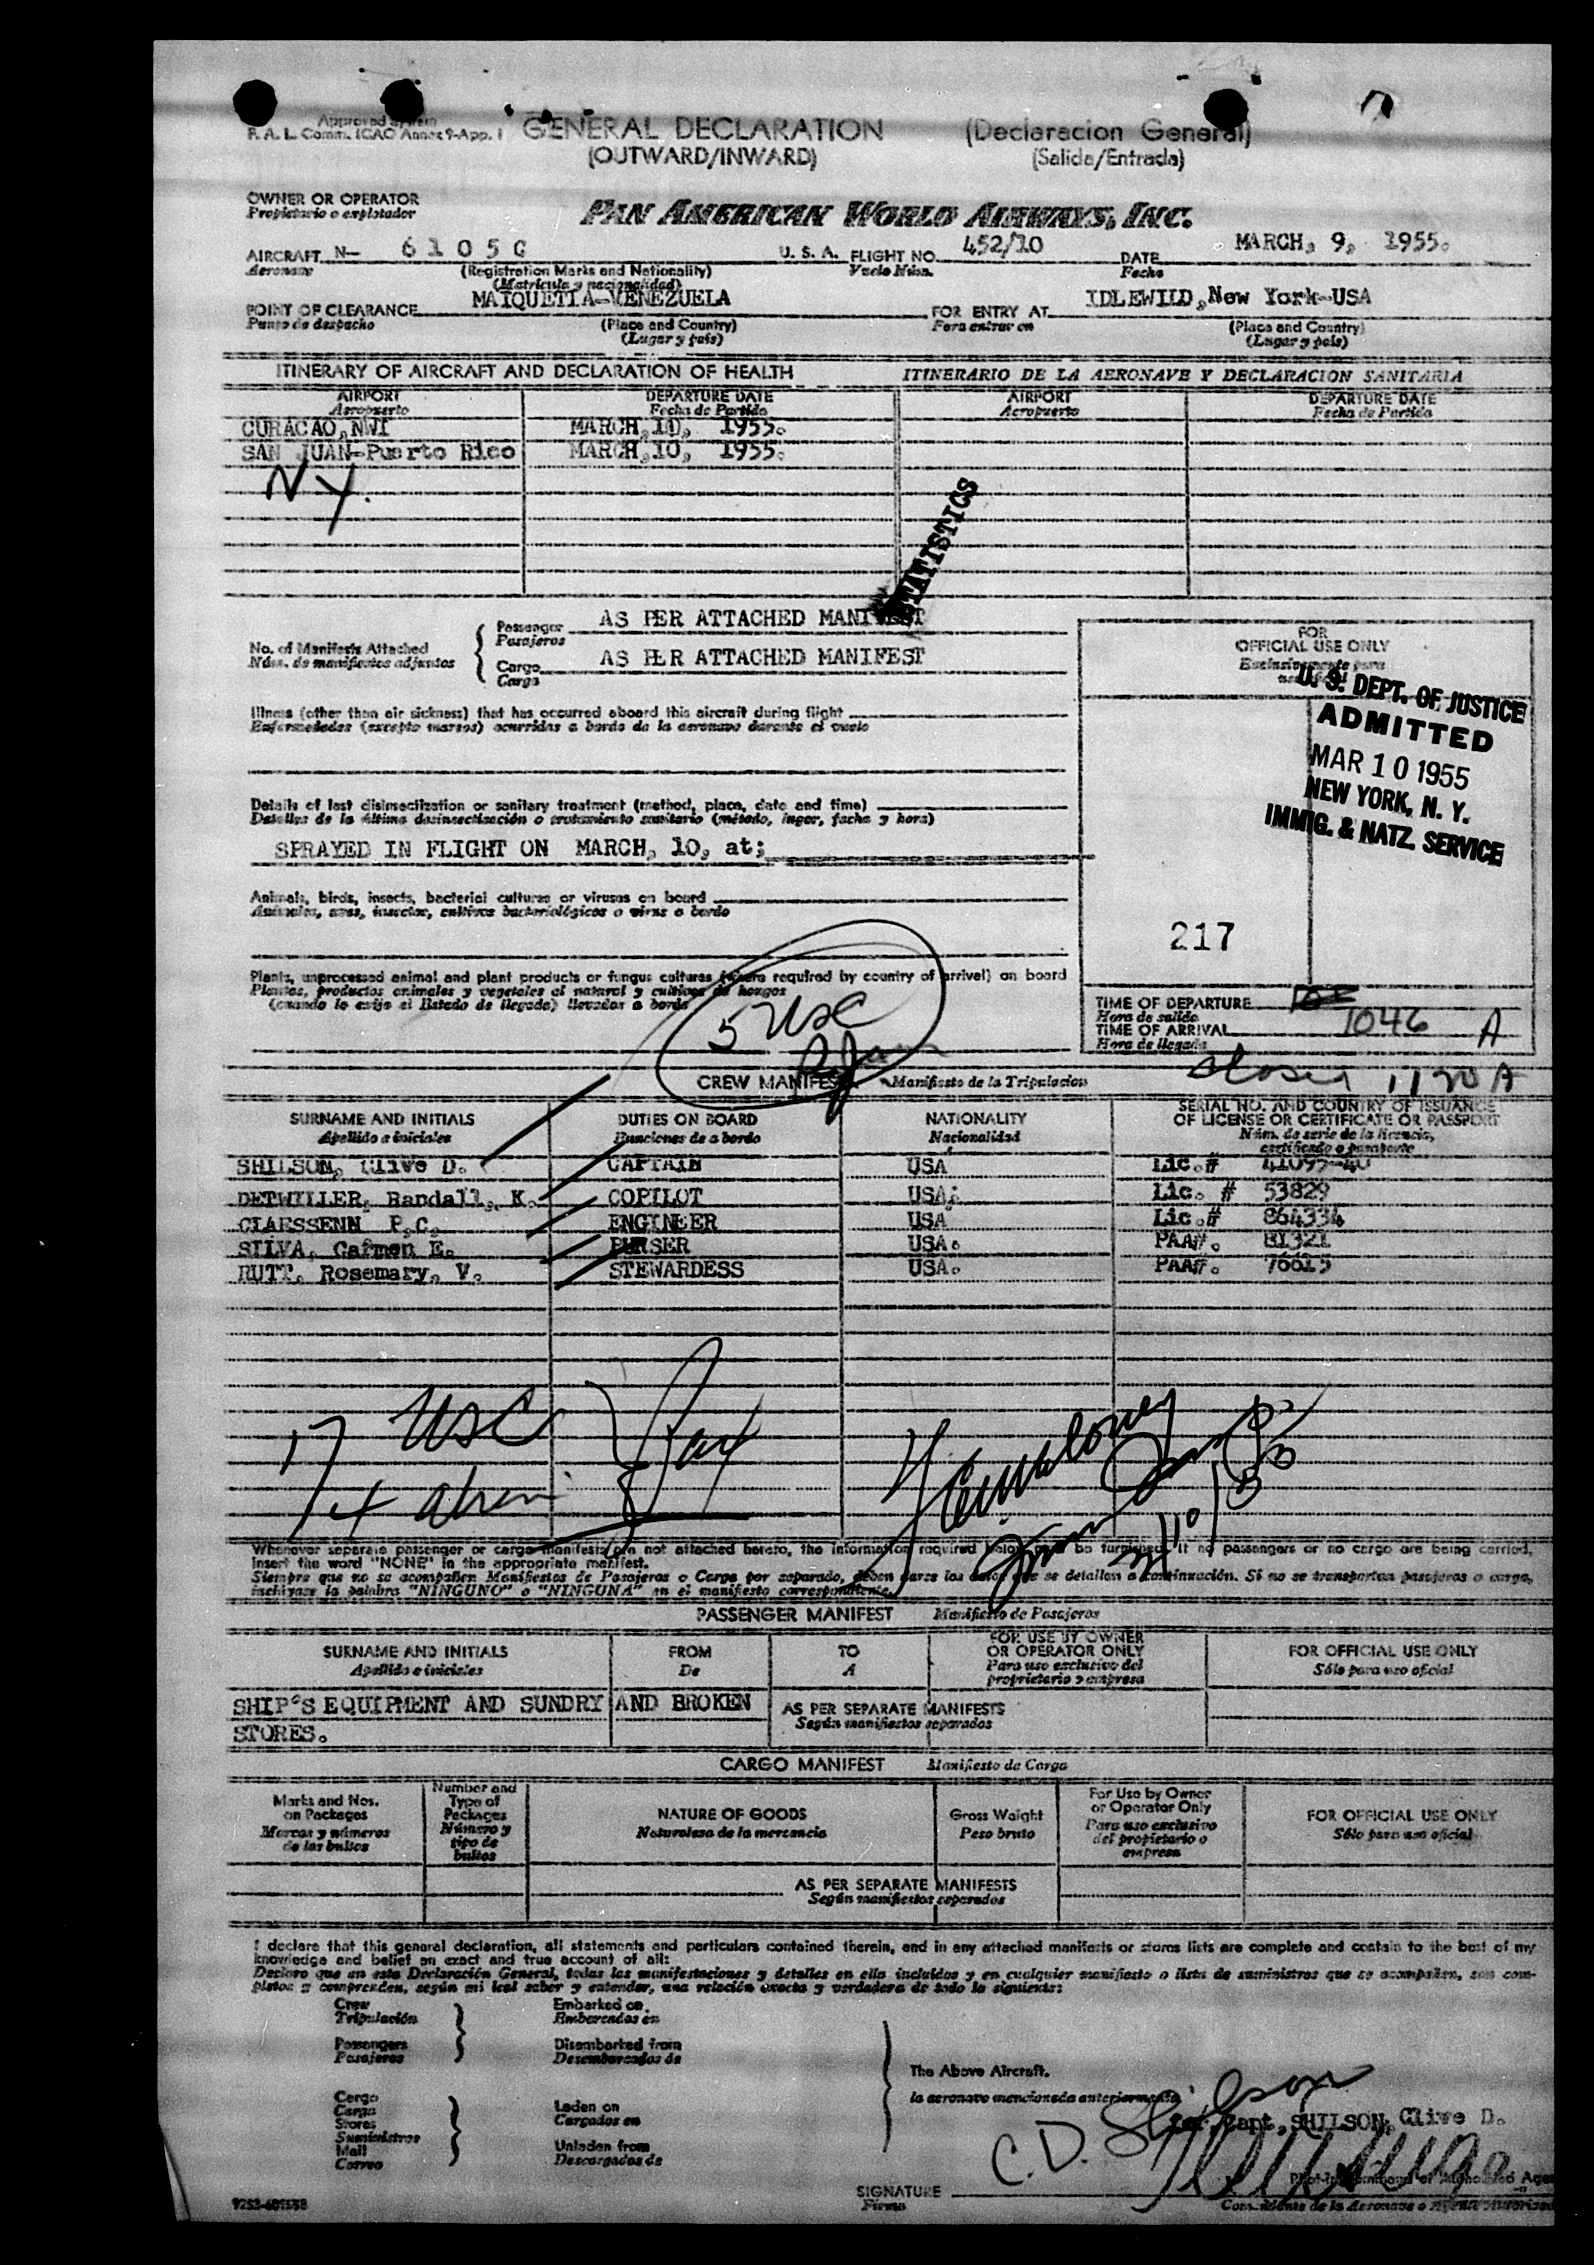 Approved
F. A. L. Comm. ICAO Annex 9-App. 1
GENERAL DECLARATION (Declaracion General)
(OUTWARD/INWARD) (Salida/Entrada)
OWNER OR OPERATOR
Propietario o explotador
PAN AMERICAN WORLD AIRWAYS, INC.
AIRCRAFT N- 6105C U. S. A. FLIGHT NO. 452/10 DATE MARCH, 9, 1955.
Aeronave (Registration Marks and Nationality) Vuelo Núm. Fecha
(Matrícula y nacionalidad)
POINT OF CLEARANCE MAIQUETIA-VENEZUELA FOR ENTRY AT IDLEWILD,New York-USA
Punto de despacho (Place and Country) Para entrar en (Place and Country)
(Lugar y país) (Lugar y país)
ITINERARY OF AIRCRAFT AND DECLARATION OF HEALTH ITINERARIO DE LA AERONAVE Y DECLARACION SANITARIA
AIRPORT DEPARTURE DATE AIRPORT DEPARTURE DATE
Aeropuerto Fecha de Partida Aeropuerto Fecha de Partida
CURACAO,NWI MARCH,10, 1955.
SAN JUAN-Puerto Rico MARCH,10, 1955.
NY.
STATISTICS
No. of Manifests Attached
Núm. de manifiestos adjuntos
Passenger AS PER ATTACHED MANIFEST
Pasajeros
Cargo AS PER ATTACHED MANIFEST
Carga
FOR
OFFICIAL USE ONLY
Exclusivamente para
U. S. DEPT. OF JUSTICE
ADMITTED
MAR 10 1955
NEW YORK, N. Y.
IMMIG. & NATZ. SERVICE
Illness (other than air sickness) that has occurred aboard this aircraft during flight
Enfermedades (excepto mareos) ocurridas a bordo de la aeronave durante el vuelo
Details of last disinsectization or sanitary treatment (method, place, date and time)
Detalles de la última desinsectización o tratamiento sanitario (método, lugar, fecha y hora)
SPRAYED IN FLIGHT ON MARCH, 10, at;
Animals, birds, insects, bacterial cultures or viruses on board
Animales, aves, insectos, cultivos bacteriológicos o virus a bordo
217
Plants, unprocessed animal and plant products or fungus cultures (where required by country of arrival) on board
Plantas, productos animales y vegetales al natural y cultivos de hongos
(cuando lo exija el Estado de llegada) llevados a bordo
5 USC
TIME OF DEPARTURE
Hora de salida
TIME OF ARRIVAL 1046 A
Hora de llegada
closed 1120 A
CREW MANIFEST Manifiesto de la Tripulacion
SURNAME AND INITIALS DUTIES ON BOARD NATIONALITY SERIAL NO. AND COUNTRY OF ISSUANCE
OF LICENSE OR CERTIFICATE OR PASSPORT
Apellido e iniciales Funciones de a bordo Nacionalidad Núm. de serie de la licencia,
certificado o pasaporte
SHILSON, Clive D. CAPTAIN USA Lic.# 41095-40
DETWILLER, Randall, K. COPILOT USA. Lic. # 53829
CLAESSENN P.C. ENGINEER USA Lic.# 864334
SILVA, Carmen E. PURSER USA. PAA#. 81321
RUTT, Rosemary, V. STEWARDESS USA. PAA#. 76615
17 USC
14 alien
3/10/55
Whenever separate passenger or cargo manifests are not attached hereto, the information required below must be furnished. If no passengers or no cargo are being carried,
insert the word "NONE" in the appropriate manifest.
Siempre que no se acompañen Manifiestos de Pasajeros o Carga por separado, deben darse los datos que se detallan a continuación. Si no se transportan pasajeros o carga,
inclúyase la palabra "NINGUNO" o "NINGUNA" en el manifiesto correspondiente.
PASSENGER MANIFEST Manifiesto de Pasajeros
SURNAME AND INITIALS FROM TO FOR USE BY OWNER
OR OPERATOR ONLY FOR OFFICIAL USE ONLY
Apellido e iniciales De A Para uso exclusivo del
propietario o empresa Sólo para uso oficial
SHIP'S EQUIPMENT AND SUNDRY AND BROKEN AS PER SEPARATE MANIFESTS
Según manifiestos separados
STORES.
CARGO MANIFEST Manifiesto de Carga
Marks and Nos.
on Packages
Marcas y números
de los bultos
Number and
Type of
Packages
Número y
tipo de
bultos
NATURE OF GOODS
Naturaleza de la mercancía
Gross Weight
Peso bruto
For Use by Owner
or Operator Only
Para uso exclusivo
del propietario o
empresa
FOR OFFICIAL USE ONLY
Sólo para uso oficial
AS PER SEPARATE MANIFESTS
Según manifiestos separados
I declare that this general declaration, all statements and particulars contained therein, and in any attached manifests or stores lists are complete and contain to the best of my
knowledge and belief an exact and true account of all:
Declaro que en esta Declaración General, todas las manifestaciones y detalles en ella incluidos y en cualquier manifiesto o lista de suministros que se acompañen, son com-
pletos y comprenden, según mi leal saber y entender, una relación exacta y verdadera de todo lo siguiente:
Crew Embarked on
Tripulación Embarcados en
Passengers Disembarked from
Pasajeros Desembarcados de
The Above Aircraft.
la aeronave mencionada anteriormente
Cargo
Carga Laden on
Stores Cargados en
Suministros
Mail Unladen from
Correo Descargados de
Capt, SHILSON, Clive D.
C. D. Shilson
SIGNATURE
Firma
Comandante de la Aeronave o Agente Autorizado